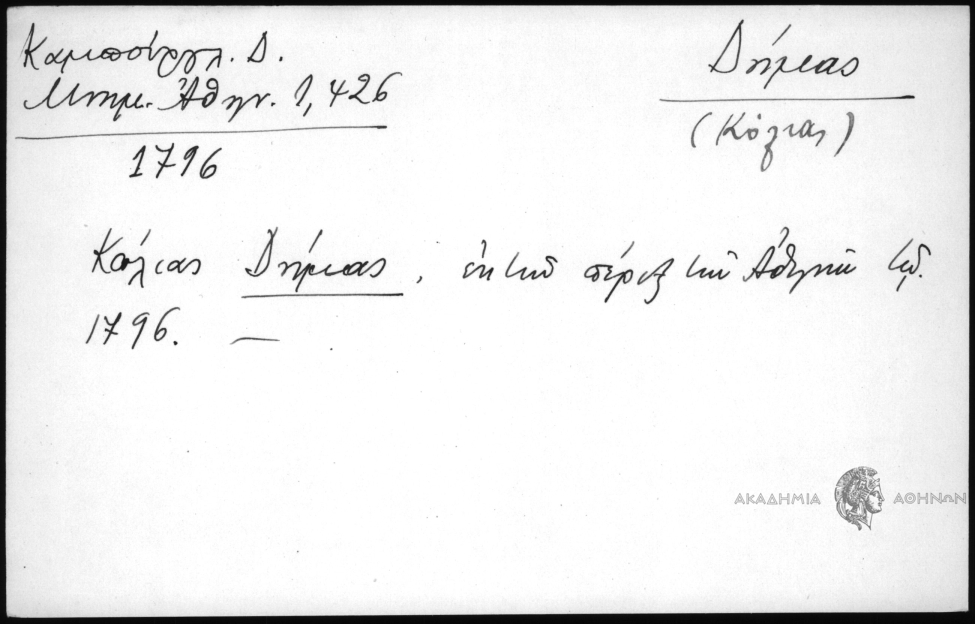 Καμπούρογλ. Δ.
Μνημ. Ἀθην. 1, 426
1796
Δήμας
(Κόλιας)
Κόλιας Δήμας, ἐκ τῶν πέριξ τῶν Ἀθηνῶν
1796. —
ΑΚΑΔΗΜΙΑ ΑΘΗΝΩΝ